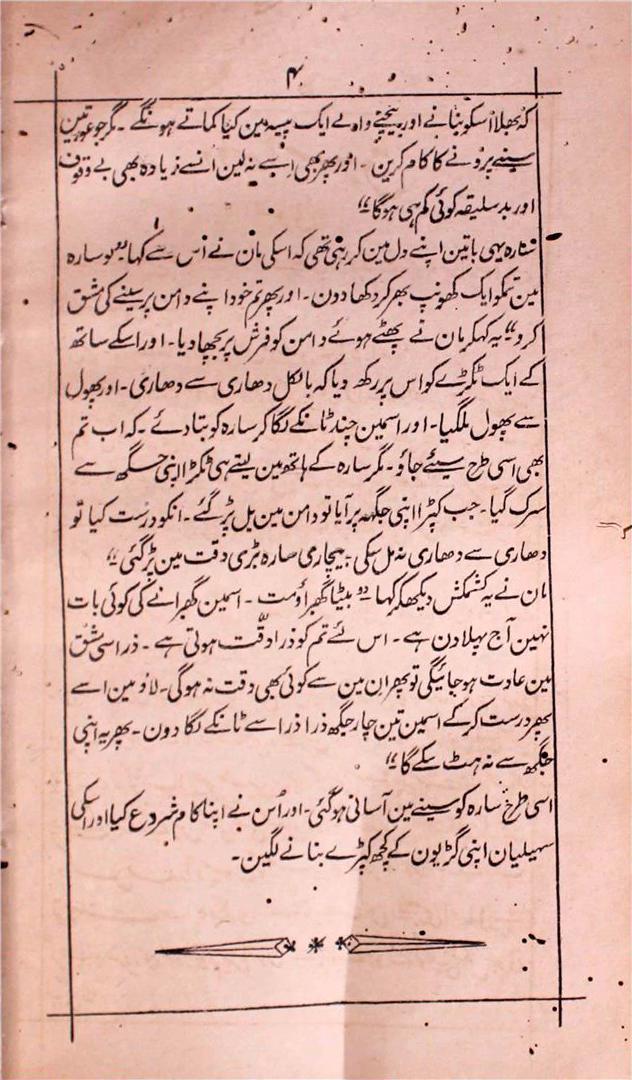 ۴
کہ بھلا اسکو بنانے اور بیچنے والے ایک پیسہ مین کیا کماتے ہونگے ۔ مگر جو عورتین
سینے پرونے کا کام کرین ۔ اور پھر بھی اسے نہ لین اُنسے زیادہ بھی بے وقوف
اور بد سلیقہ کوئی کم ہی ہوگا“
سارہ یہی باتین اپنے دل مین کر رہی تھی کہ اسکی مان نے اُس سے کہا ”لو سارہ
مین تمکو ایک کھونپ بھر کر دکھا دون ۔ اور پھر تم خود اپنے دامن پر سینے کی مشق
کرو“ یہ کہکر مان نے پھٹے ہوئے دامن کو فرش پر بچھا دیا ۔ اور اسکے ساتھ
کے ایک ٹکڑے کو اس پر رکھ دیا کہ بالکل دھاری سے دھاری ۔ اور پھول
سے پھول ملگیا ۔ اور اسمین چند ٹانکے لگا کر سارہ کو بتا دئے ۔ کہ اب تم
بھی اسی طرح سیئے جاؤ ۔ مگر سارہ کے ہاتھ مین لیتے ہی ٹکڑا اپنی جگھ سے
سرک گیا ۔ جب کپڑا اپنی جگھہ پر آیا تو دامن مین بل پڑ گئے ۔ انکو درست کیا تو
دھاری سے دھاری نہ مل سکی ۔ بیچاری سارہ بڑی دقت مین پڑ گئی“
مان نے یہ کشمکش دیکھکر کہا ۔ ”بیٹا گھبراؤ مت ۔ اسمین گھبرانے کی کوئی بات
نہین آج پہلا دن ہے ۔ اس لئے تم کو ذرا دقّت ہوتی ہے ۔ ذرا سی مشق
مین عادت ہو جائیگی تو پھر ان مین سے کوئی بھی دقت نہ ہوگی ۔ لاؤ مین اسے
پھر درست کر کے اسمین تین چار جگھ ذرا ذرا سے ٹانکے لگا دون ۔ پھر یہ اپنی
جگھ سے نہ ہٹ سکے گا“
اسی طرح سارہ کو سینے مین آسانی ہو گئی ۔ اور اُس نے اپنا کام شروع کیا اور اسکی
سہیلیان اپنی گڑیون کے کچھ کپڑے بنانے لگین ۔